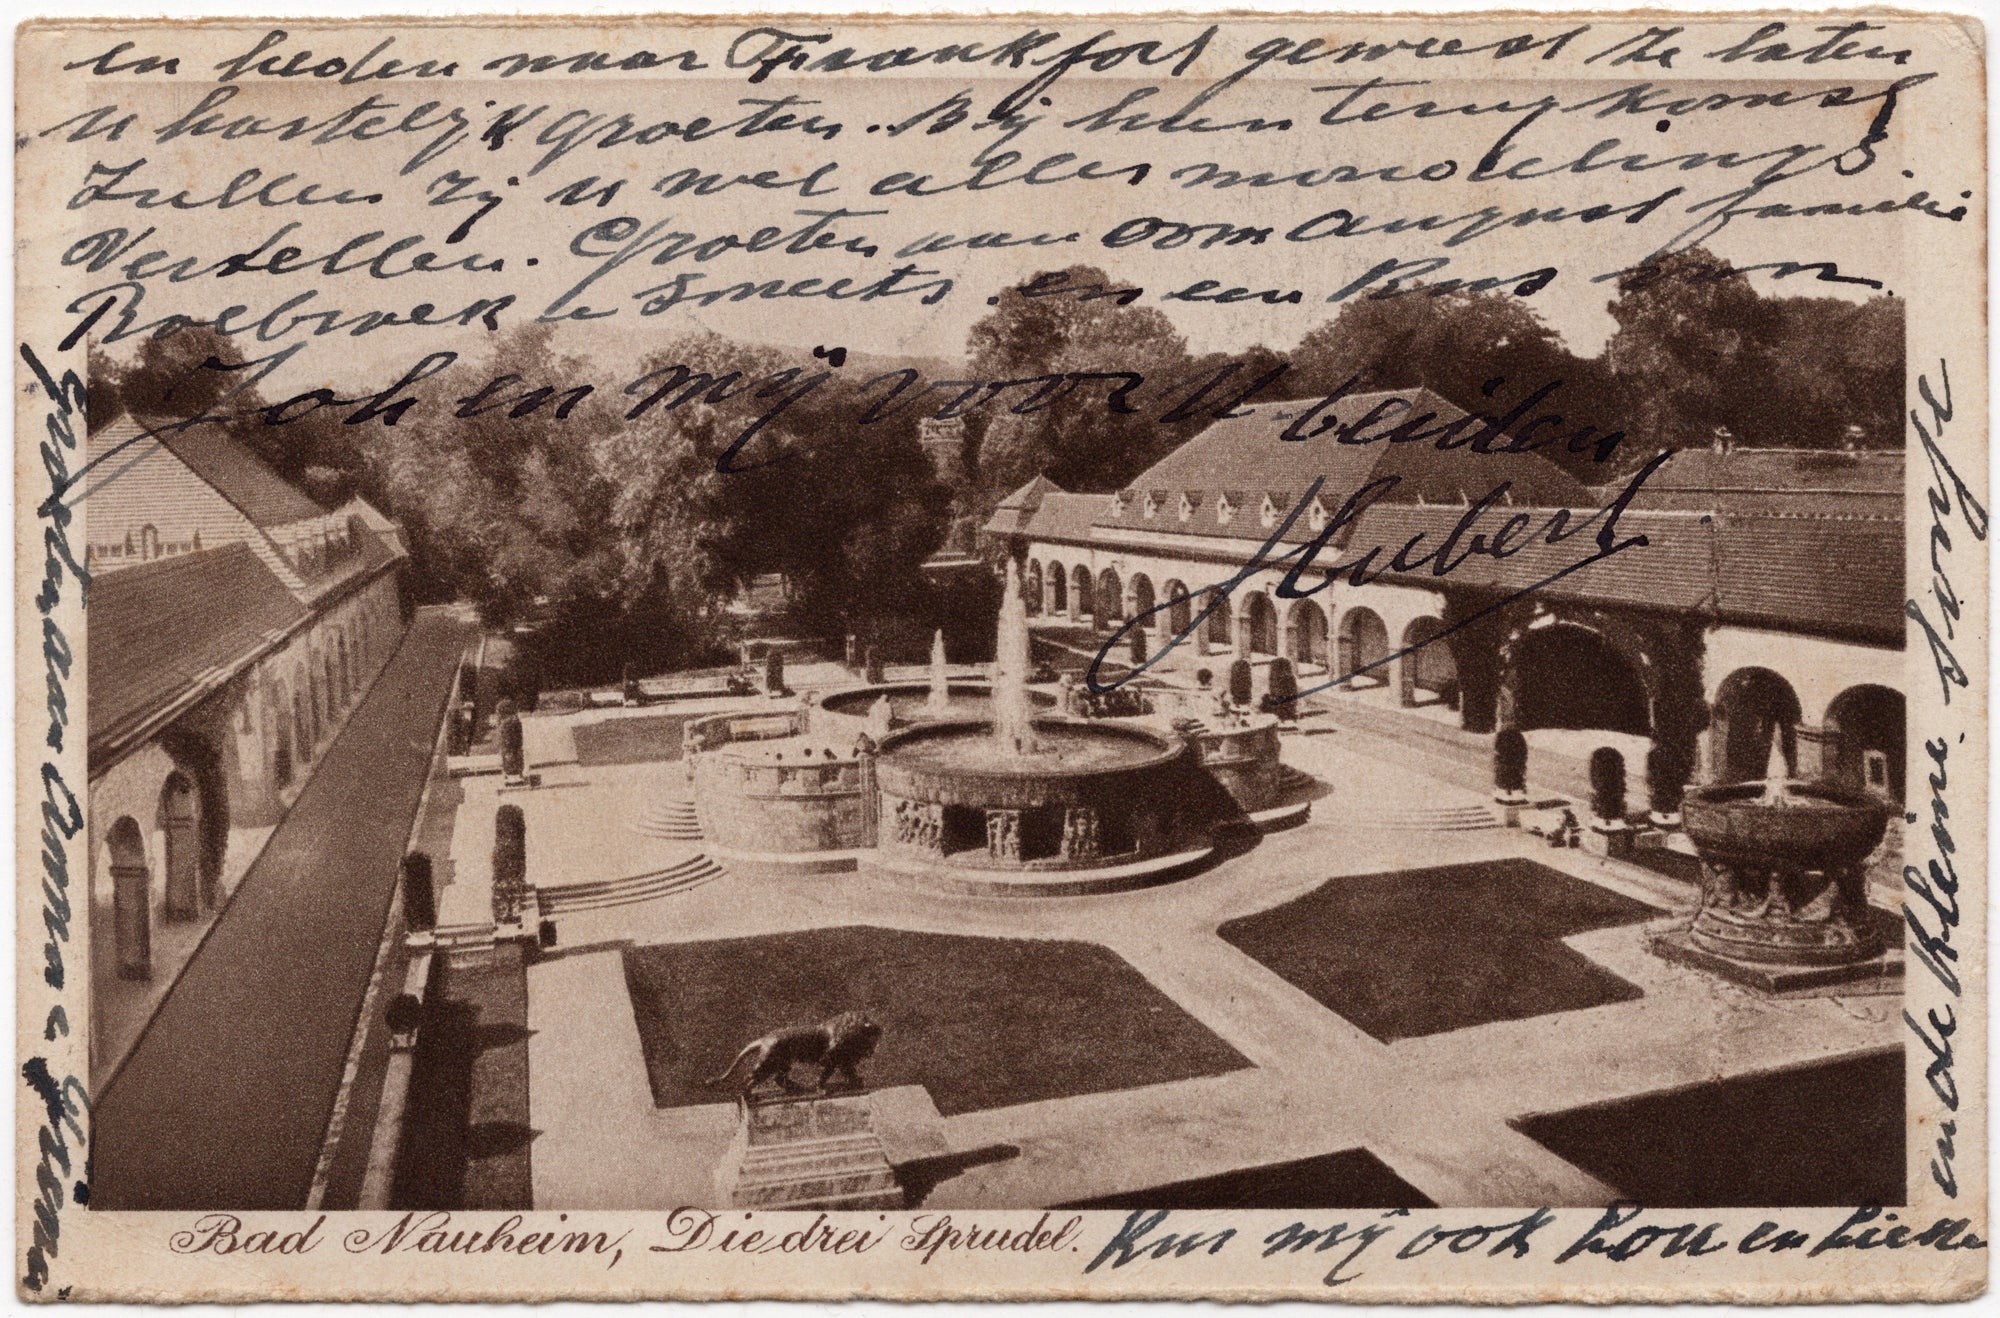 en heden naar Frankfort geweest te laten
u hartelijk groeten. Bij hun terugkomst
zullen zij u wel alles mondelings
Vertellen. Groeten aan oom August familie
Roebroek e Smeets. en een Kus van
Joh en mij voor U beiden
Hubert
Groeten aan Anna e Giena
Kus mij ook Lou en Lieke
en de Kleine Swofje
Bad Nauheim, Die drei Sprudel.